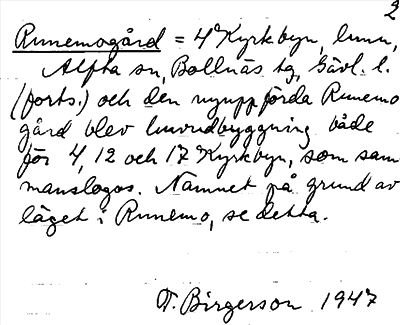 2
Runemogård = 4 Kyrkbyn, lmn,
Alfta sn, Bollnäs tg, Gävl. l.
(forts.) och den nyuppförda Runemo
gård blev huvudbyggning både
för 4, 12 och 17 Kyrkbyn, som sam
manslogos. Namnet på grund av
läget i Runemo, se detta.
T. Birgerson 1947